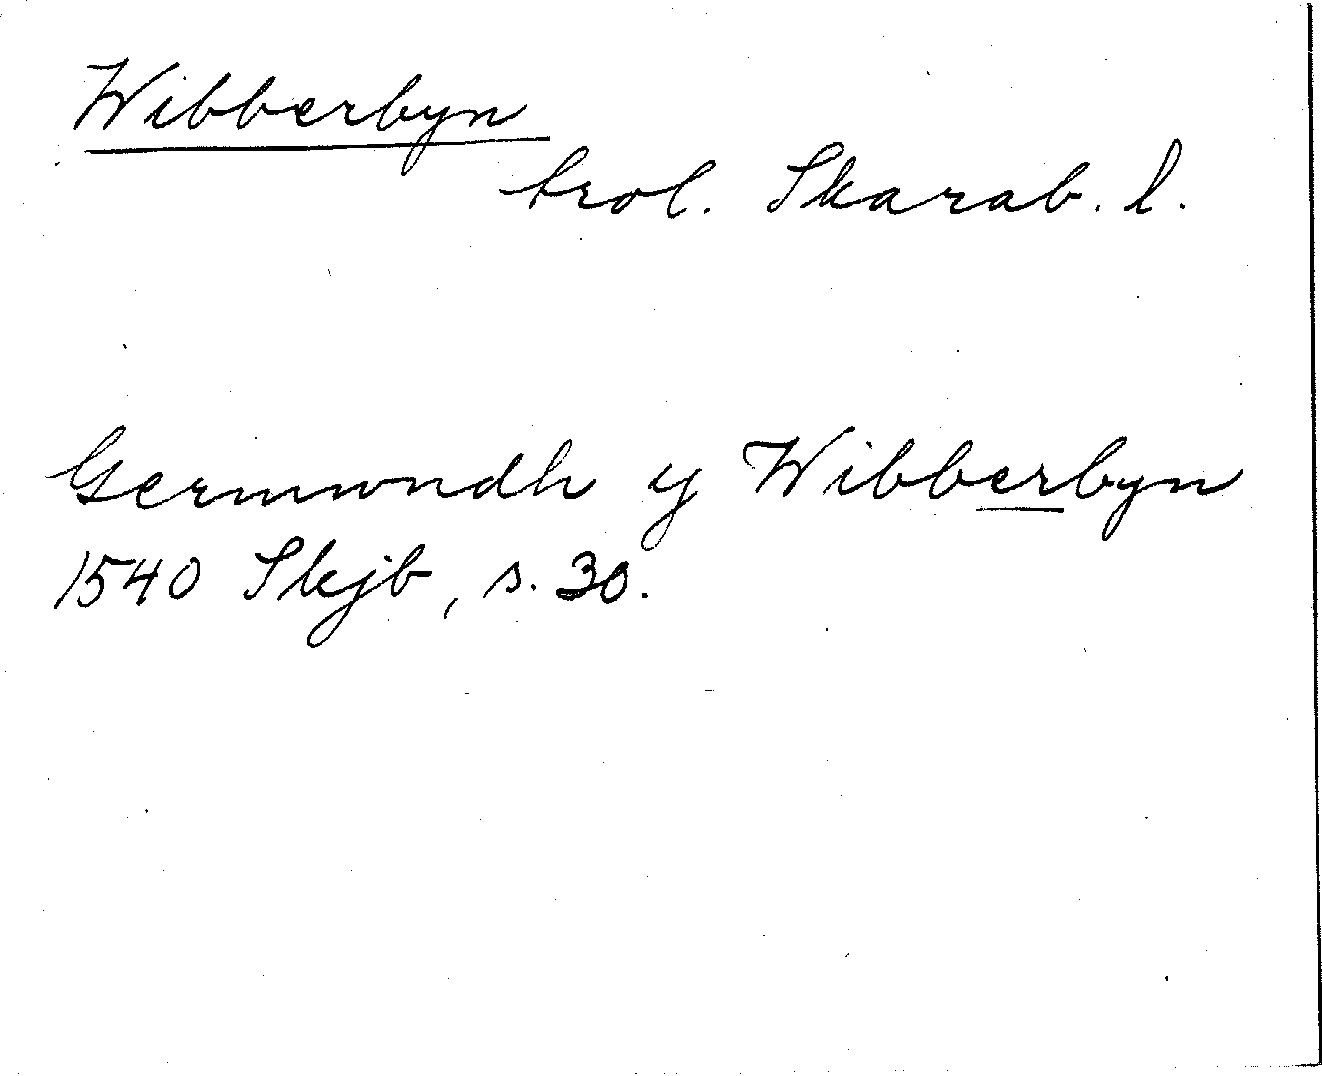 Wibberbyn
trol. Skarab. l.
Germwndh y Wibberbyn
1540 Skjb, s. 30.